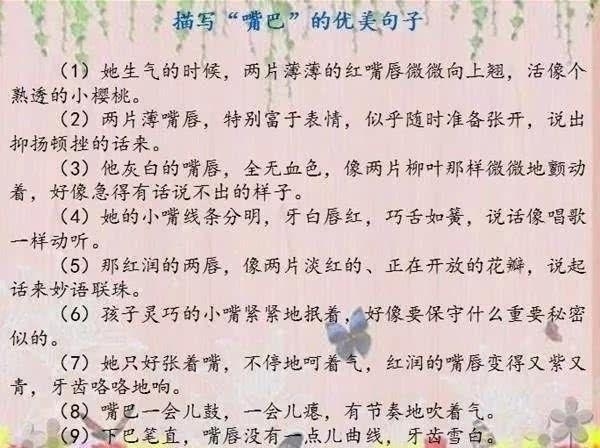 描写“嘴巴”的优美句子
（1）她生气的时候，两片薄薄的红嘴唇微微向上翘，活像个
熟透的小樱桃。
（2）两片薄嘴唇，特别富于表情，似乎随时准备张开，说出
抑扬顿挫的话来。
（3）他灰白的嘴唇，全无血色，像两片柳叶那样微微地颤动
着，好像急得有话说不出的样子。
（4）她的小嘴线条分明，牙白唇红，巧舌如簧，说话像唱歌
一样动听。
（5）那红润的两唇，像两片淡红的、正在开放的花瓣，说起
话来妙语联珠。
（6）孩子灵巧的小嘴紧紧地抿着，好像要保守什么重要秘密
似的。
（7）她只好张着嘴，不停地呵着气，红润的嘴唇变得又紫又
青，牙齿咯咯地响。
（8）嘴巴一会儿鼓，一会儿瘪，有节奏地吹着气。
（9）下巴笔直，嘴唇没有一点儿曲线，牙齿雪白。